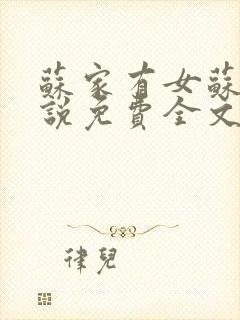 蘇家有女蘇
說免費全文
律兒